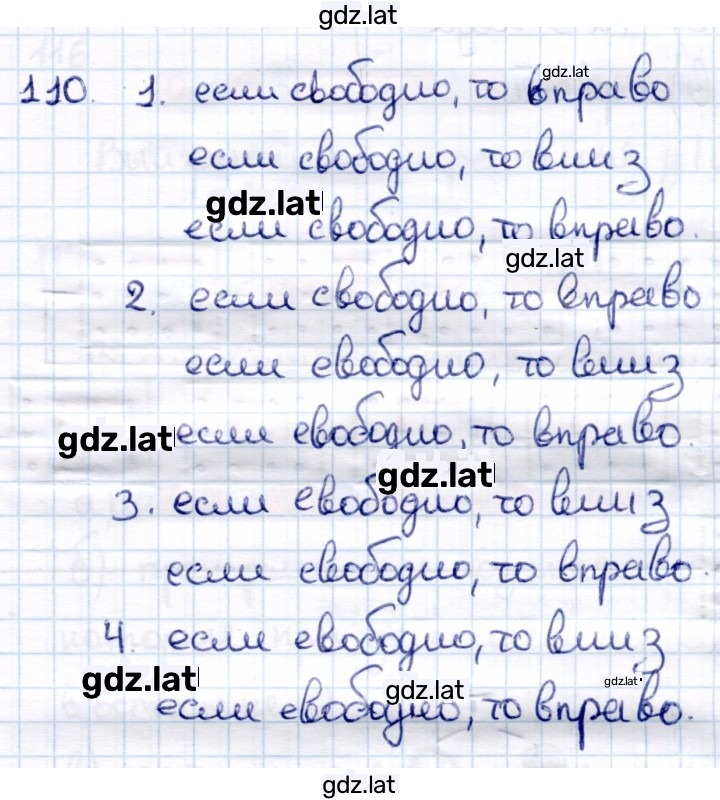 gdz.lat
110. 1. если свободно, то вправо
gdz.lat
если свободно, то вниз
gdz.lat
если свободно, то вправо.
gdz.lat
2. если свободно, то вправо
если свободно, то вниз
gdz.lat
если свободно, то вправо.
gdz.lat
3. если свободно, то вниз
если свободно, то вправо.
4. если свободно, то вниз
gdz.lat
gdz.lat
gdz.lat
если свободно, то вправо.
gdz.lat